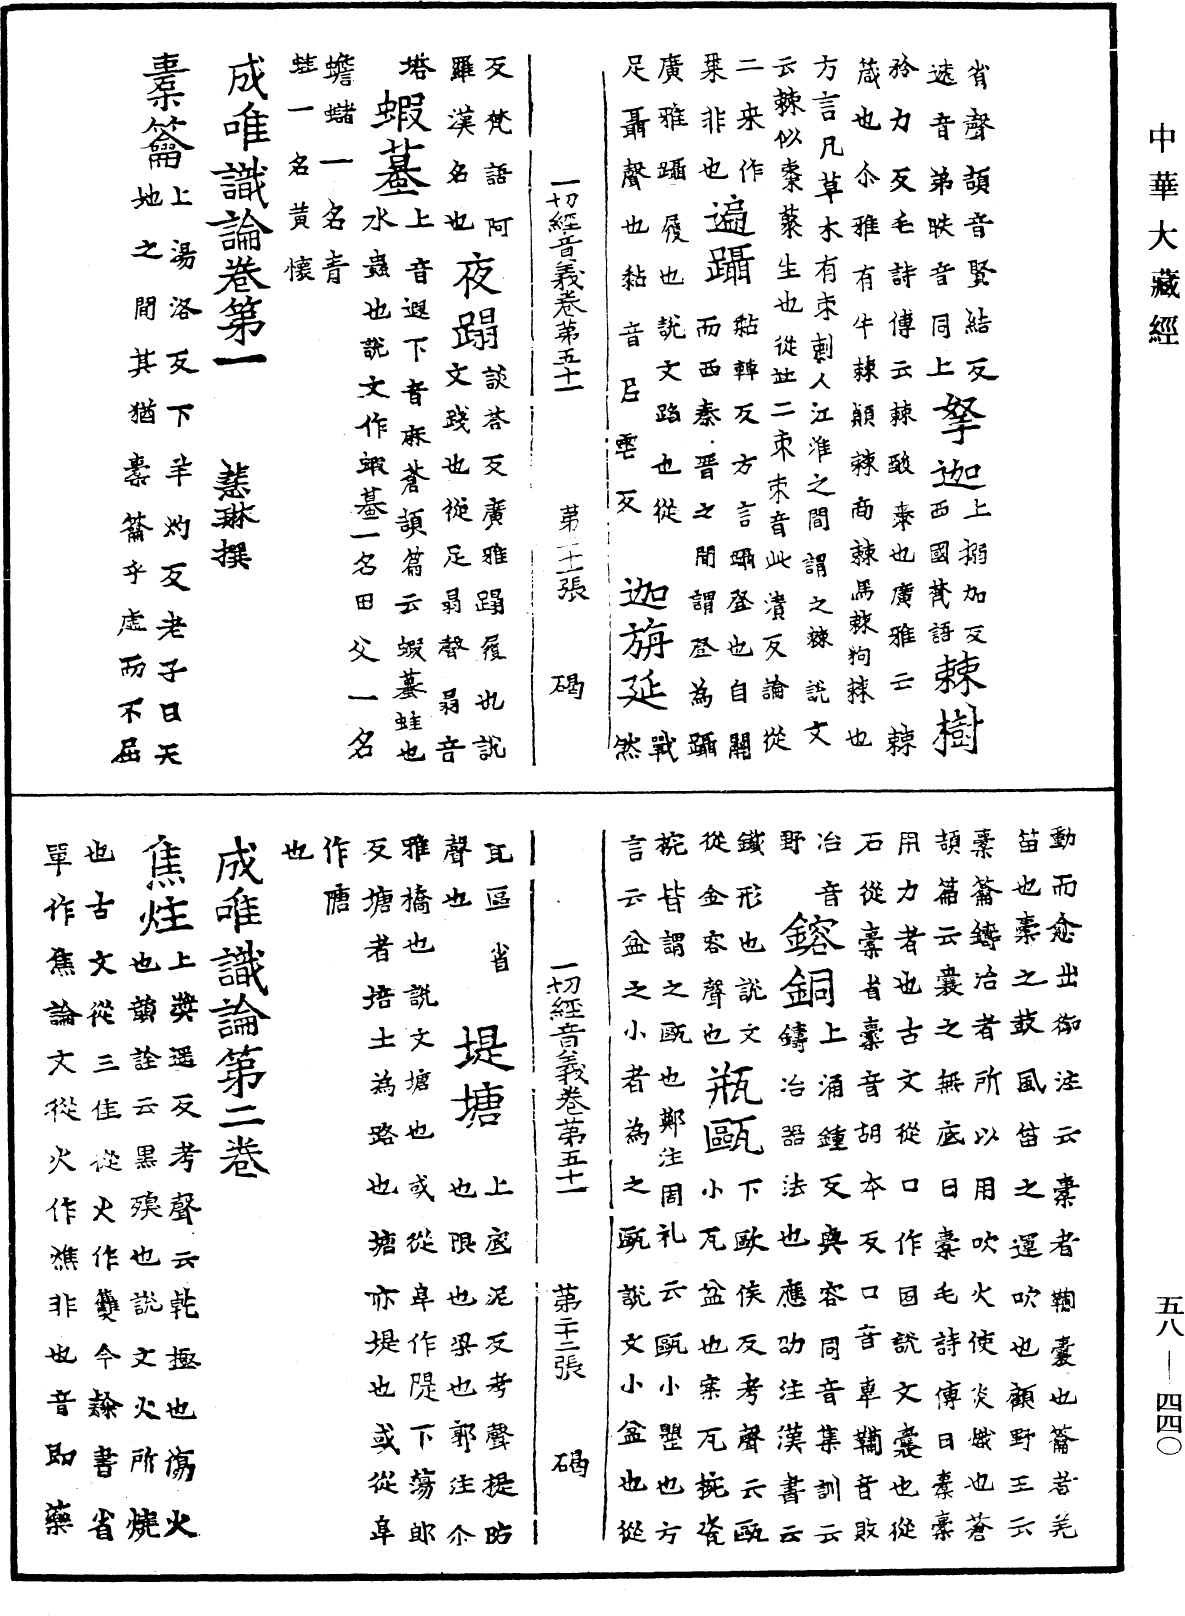 中華大藏經
省聲頡音賢結反
迭音弟昳音同上
拏迦上搦加反
西國梵語
棘樹
矜力反毛詩傳云棘酸棗也廣雅云棘
葴也尒雅有牛棘顛棘商棘馬棘狗棘也
方言凡草木有朿刺人江淮之間謂之棘說文
云棘似棗藂生也從竝二朿朿音此漬反論從
二来作
棗非也
遍躡黏輒反方言躡登也自關
而西秦晉之間謂登為躡
廣雅躡履也說文蹈也從
足聶聲也黏音
迦旃延戰
然
反
一切經音義卷第五十一　第二十二張　碣
反梵語阿
羅漢名也
夜蹋談荅反廣雅蹋履也說
文踐也從足𦐇聲𦐇音
塔
蝦蟇上音遐下音麻蒼頡篇云蝦蟇蛙也
水蟲也說文作蝦蟇一名田父一名
蟾蠩一名青
蛙一名黃懷
成唯識論卷第一　慧琳撰
橐籥上湯洛反下羊灼反老子曰天
地之間其猶橐籥乎虛而不屈
動而愈出御注云橐者鞴囊也籥者羌
笛也橐之鼓風笛之運吹也顧野王云
橐籥鑄冶者所以用吹火使炎熾也蒼
頡篇云囊之無底曰橐毛詩傳曰橐橐
用力者也古文從口作𡇈說文囊也從
石從橐省橐音胡本反口音韋鞴音敗
冶音
野
鎔銅上涌鍾反與容同音集訓云
鑄冶器法也應劭注漢書云
鐵形也說文
從金容聲也
瓶甌下歐侯反考聲云甌
小瓦盆也案瓦椀瓷
椀皆謂之甌也鄭注周礼云甌小甖也方
言云盆之小者為之甌說文小盆也從
一切經音義卷第五十一　第二十三張　碣
瓦區省
聲也
堤塘上底泥反考聲堤防
也限也梁也郭注尒
雅橋也說文塘也或從阜作隄下蕩郎
反塘者培土為路也塘亦堤也或從阜
作隚
也
成唯識論第二卷
焦炷上獎遥反考聲云乾極也傷火
也韻詮云黑殠也說文火所燒
也古文從三隹從火作雧今𨽻書省
單作焦論文從火作燋非也音即藥
五八—四四〇